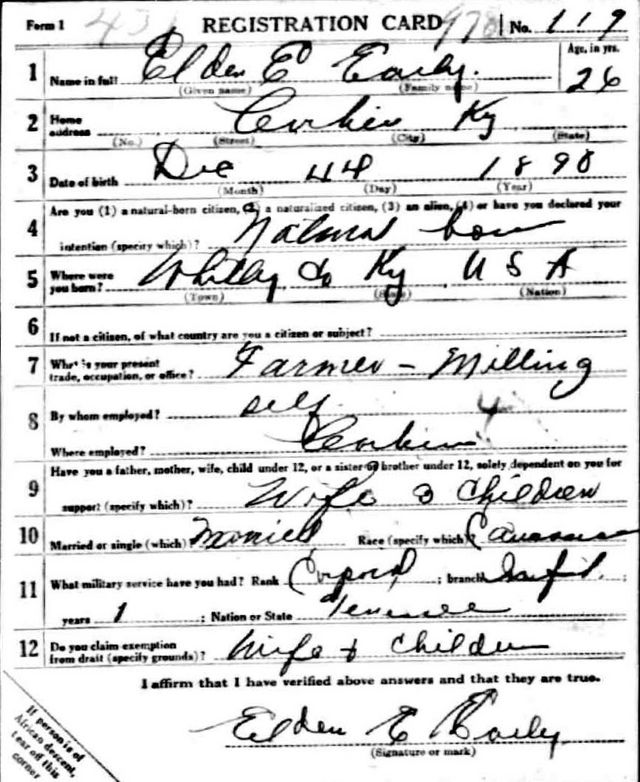 Form 1 REGISTRATION CARD No. 119
1 Name in full Elden E Early. Age, in yrs. 26
(Given name) (Family name)
2 Home address Corbin Ky
(No.) (Street) (City) (State)
3 Date of birth Dec 1890
(Month) (Day) (Year)
4 Are you (1) a natural-born citizen, (2) a naturalized citizen, (3) an alien, (4) or have you declared your
intention (specify which)? Natural born
5 Where were you born? Whitley Co Ky U S A
(Town) (State) (Nation)
6 If not a citizen, of what country are you a citizen or subject?
7 What is your present trade, occupation, or office? Farmer - Milling
8 By whom employed? self
Where employed? Corbin
9 Have you a father, mother, wife, child under 12, or a sister or brother under 12, solely dependent on you for
support (specify which)? Wife 3 Children
10 Married or single (which)? Married Race (specify which)? Caucasian
11 What military service have you had? Rank Corporal ; branch Inft. ;
years 1 ; Nation or State Tennessee
12 Do you claim exemption from draft (specify grounds)? Wife + Children
I affirm that I have verified above answers and that they are true.
Elden E Early
(Signature or mark)
If person is of
African descent,
tear off this
corner